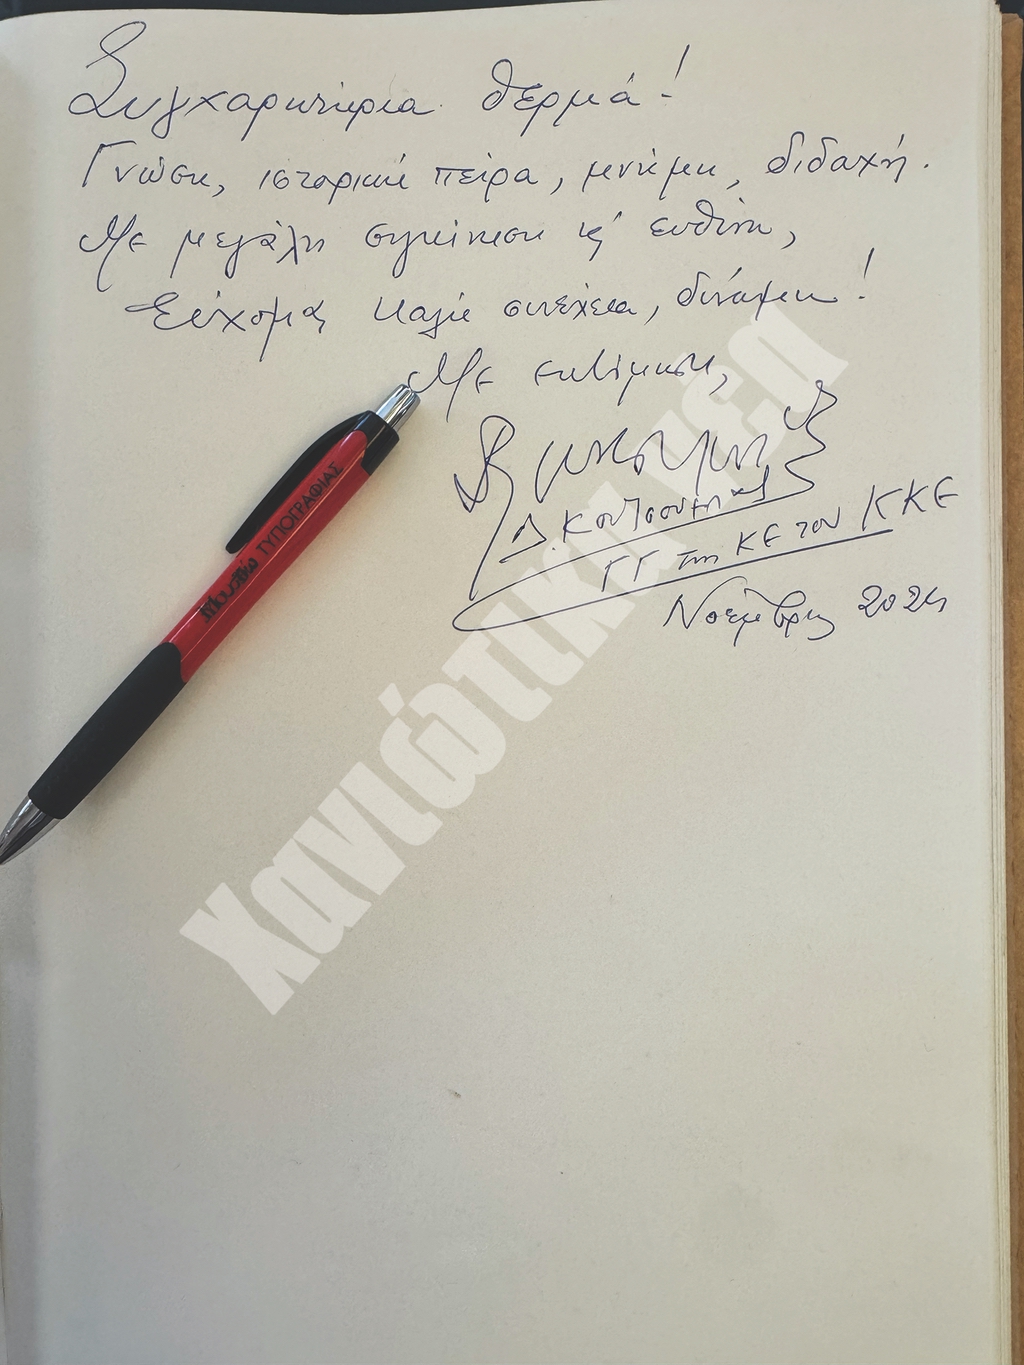 Συγχαρητήρια θερμά!
Γνώση, ιστορική πείρα, μνήμη, διδαχή.
Με μεγάλη συγκίνηση κ' ευθύνη,
Εύχομαι καλή συνέχεια, δύναμη!
Με εκτίμηση,
Δ. Κουτσούμπας
ΓΓ της ΚΕ του ΚΚΕ
Νοέμβρης 2024
Μουσείο ΤΥΠΟΓΡΑΦΙΑΣ
Χανιώτικα νέα